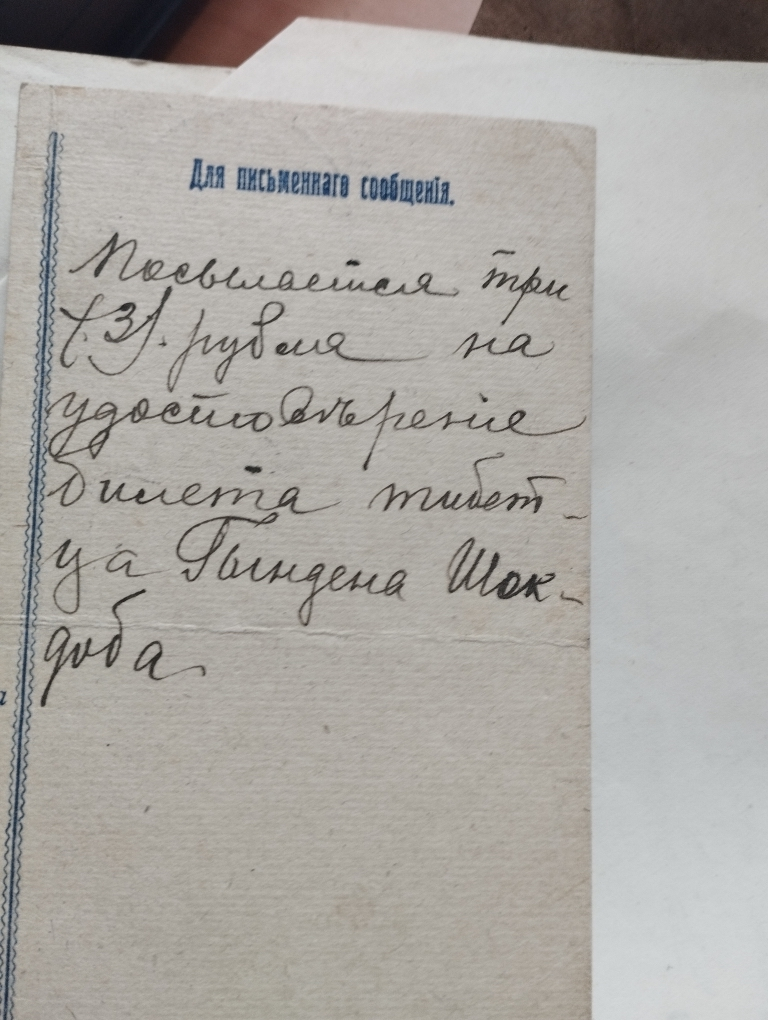 Для письменнаго сообщенія.
Посылается три
(3). рубля на
удостовѣреніе
билета тибет-
ца Гындена Шок-
доба